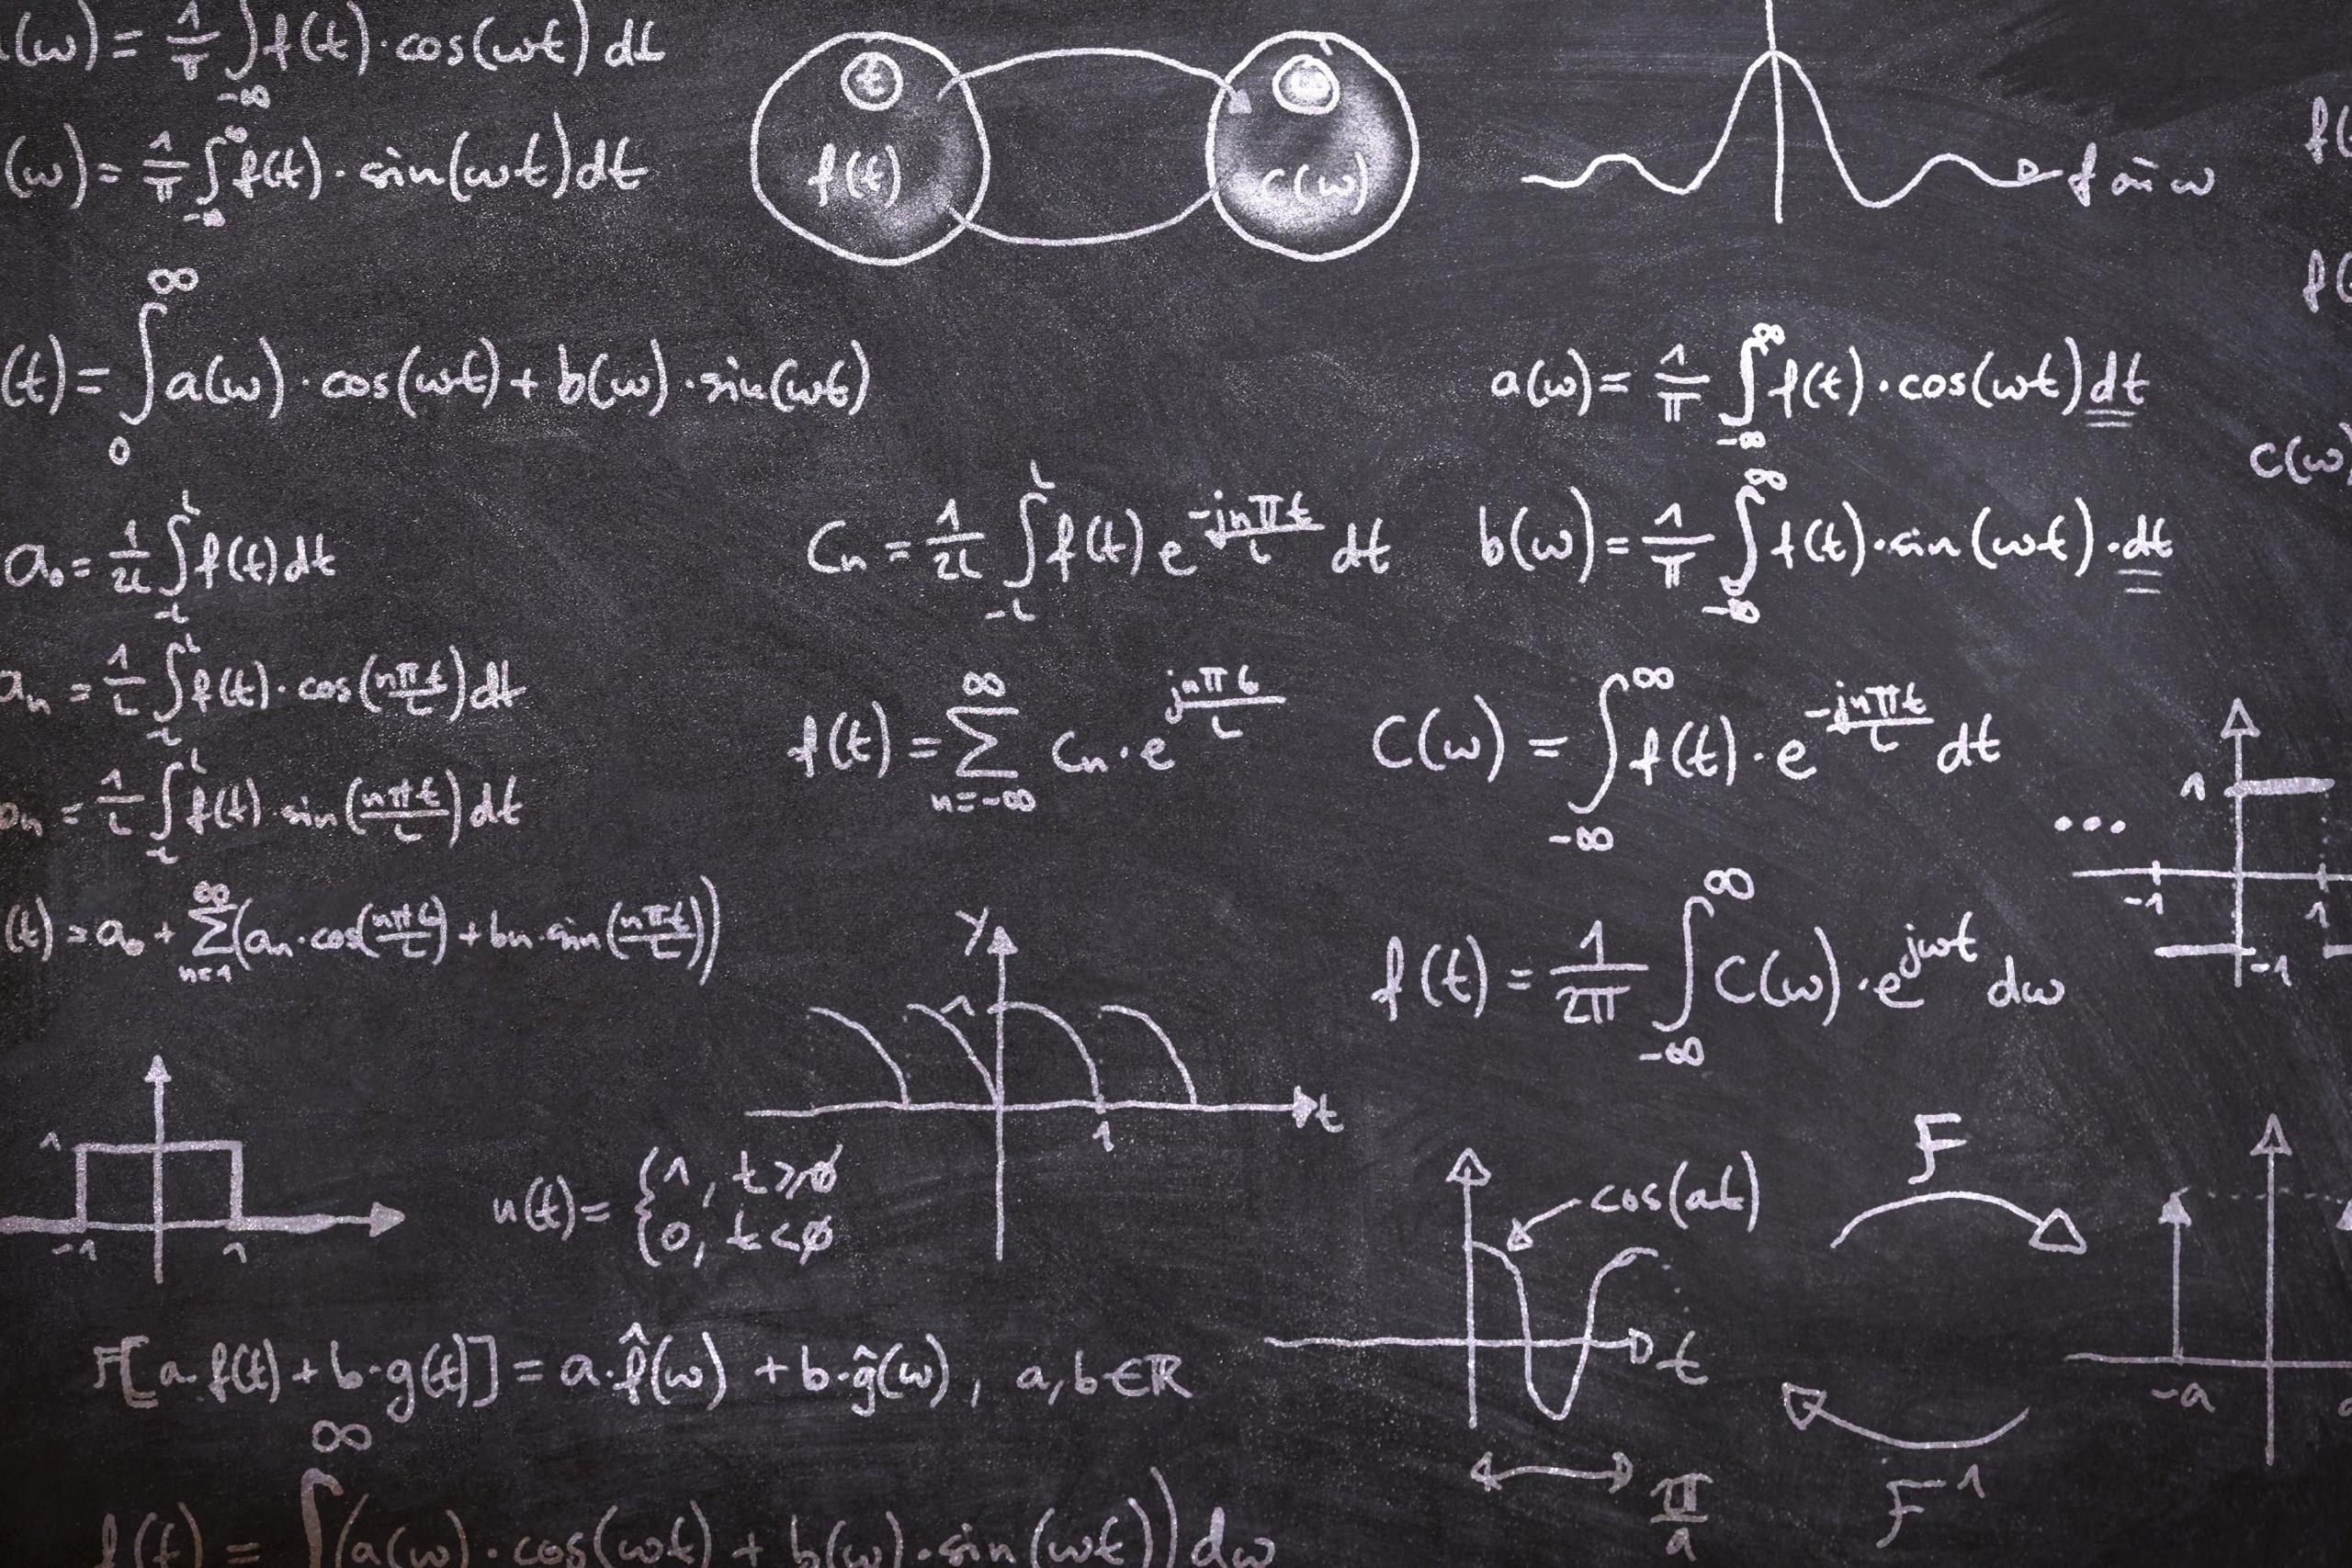 (ω) = 1/π ∫_{-∞} f(t) · cos(ωt) dt
(ω) = 1/π ∫_{-∞}^{∞} f(t) · sin(ωt) dt
t
f(t)
c(ω)
f(
f(
(t) = ∫_0^∞ a(ω) · cos(ωt) + b(ω) · sin(ωt)
a(ω) = 1/π ∫_{-∞}^{∞} f(t) · cos(ωt) dt
c(ω)
a₀ = 1/2L ∫_{-L}^{L} f(t) dt
Cn = 1/2L ∫_{-L}^{L} f(t) e^{-jnπt/L} dt
b(ω) = 1/π ∫_{-∞}^{∞} f(t) · sin(ωt) · dt
an = 1/L ∫_{-L}^{L} f(t) · cos(nπt/L) dt
f(t) = Σ_{n=-∞}^{∞} Cn · e^{jnπt/L}
C(ω) = ∫_{-∞}^{∞} f(t) · e^{-jnπt/L} dt
bn = 1/L ∫_{-L}^{L} f(t) · sin(nπt/L) dt
1
...
-1
1
-1
(t) = a₀ + Σ_{n=1}^{∞} (an · cos(nπt/L) + bn · sin(nπt/L))
f(t) = 1/2π ∫_{-∞}^{∞} C(ω) · e^{jωt} dω
y
1
t
1
1
-1
1
u(t) = {1, t ≥ 0
0, t < 0
cos(at)
t
π/a
F
F⁻¹
-a
F[a · f(t) + b · g(t)] = a · f̂(ω) + b · ĝ(ω), a, b ∈ ℝ
f(t) = ∫^∞ (a(ω) · cos(ωt) + b(ω) · sin(ωt)) dω